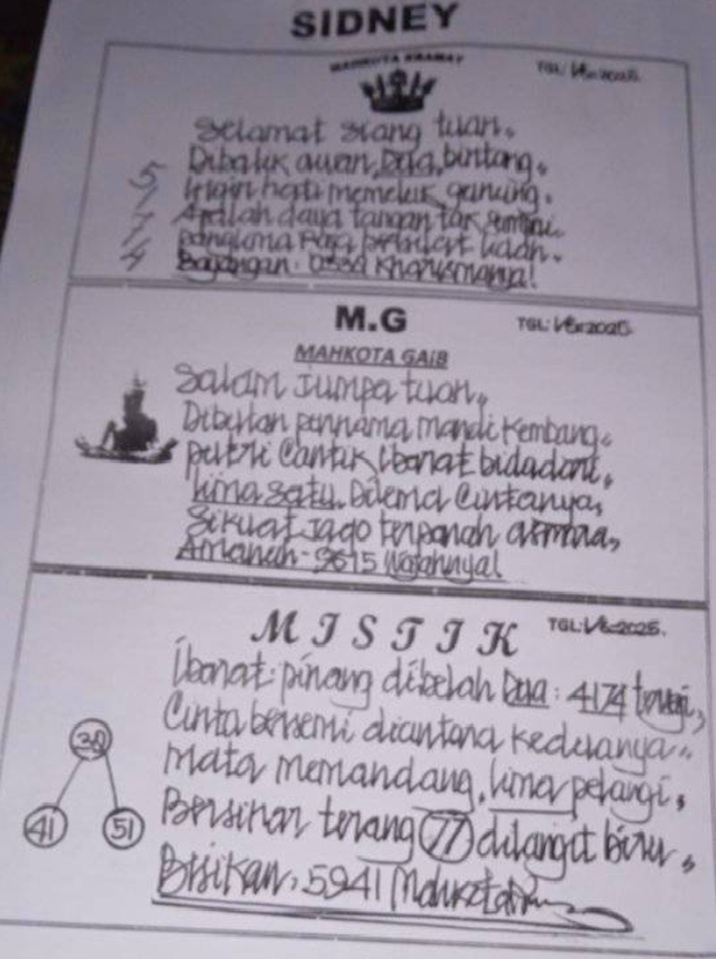 SIDNEY
MAHKOTA KRAMAT
TGL:
Selamat siang tuan.
Dibalik awan, Dua, bintang.
5 Ingin hati memeluk gunung.
1 Apalah daya tangan tak sampai.
7
4
Bayangan: 0534 Kharismanya!
M.G
TGL: 2025
MAHKOTA GAiB
Salam jumpa tuan,
Dibulan purnama mandi kembang.
putri Cantik ibarat bidadari,
Lima satu. Dilema Cintanya,
Sikuat jago terpanah asmara,
Amanah - 9615 Wajahnya!
MISTIK
TGL: 2025.
Ibarat: pinang dibelah Dua: 4174
Cinta bersemi diantara keduanya..
Mata memandang, lima pelangi,
30
41 51
Bersinar terang 77 dilangit biru,
Bisikan, 5941